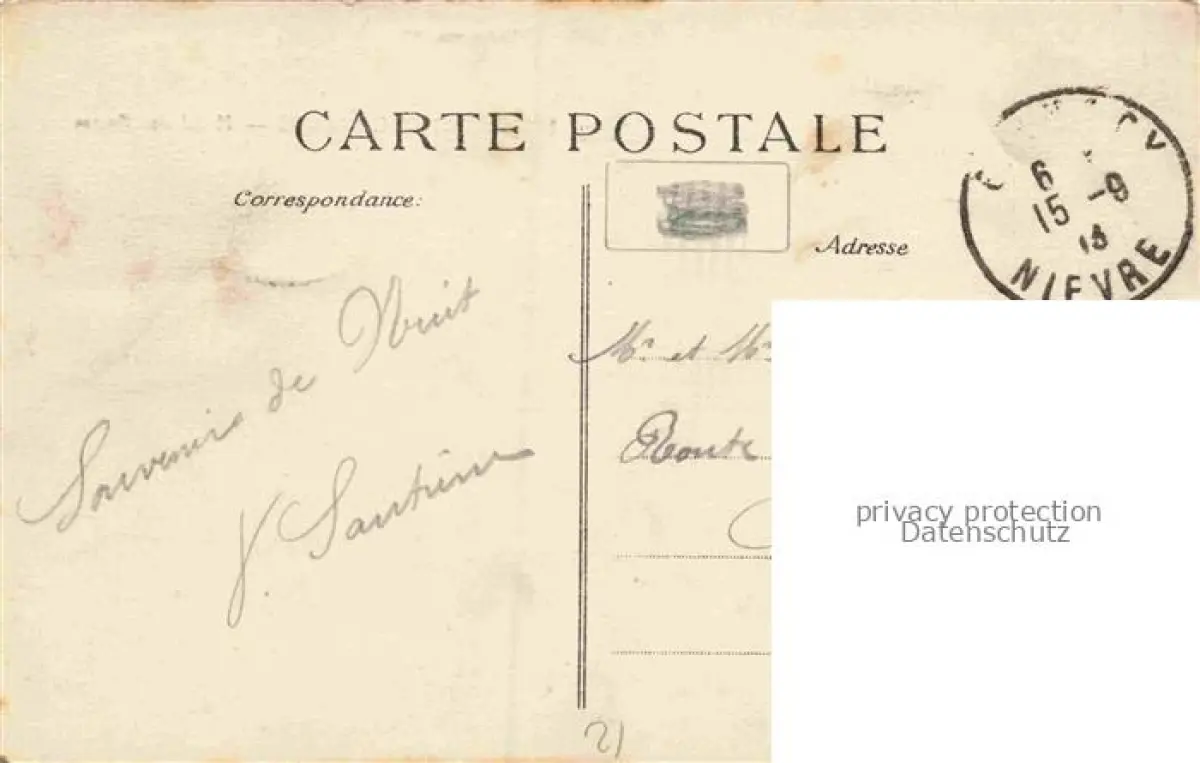 CARTE POSTALE
Correspondance:
Adresse
6
15 -9
13
NIEVRE
Souvenirs de Nuit
Mr et Mr
Route
privacy protection
Datenschutz
21